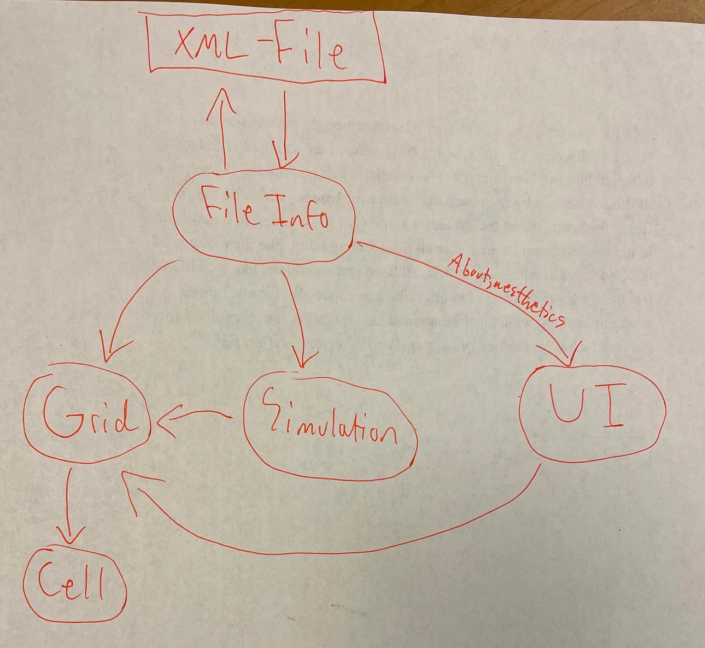 XML-File
File Info
About, aesthetics
Grid
Simulation
UI
Cell